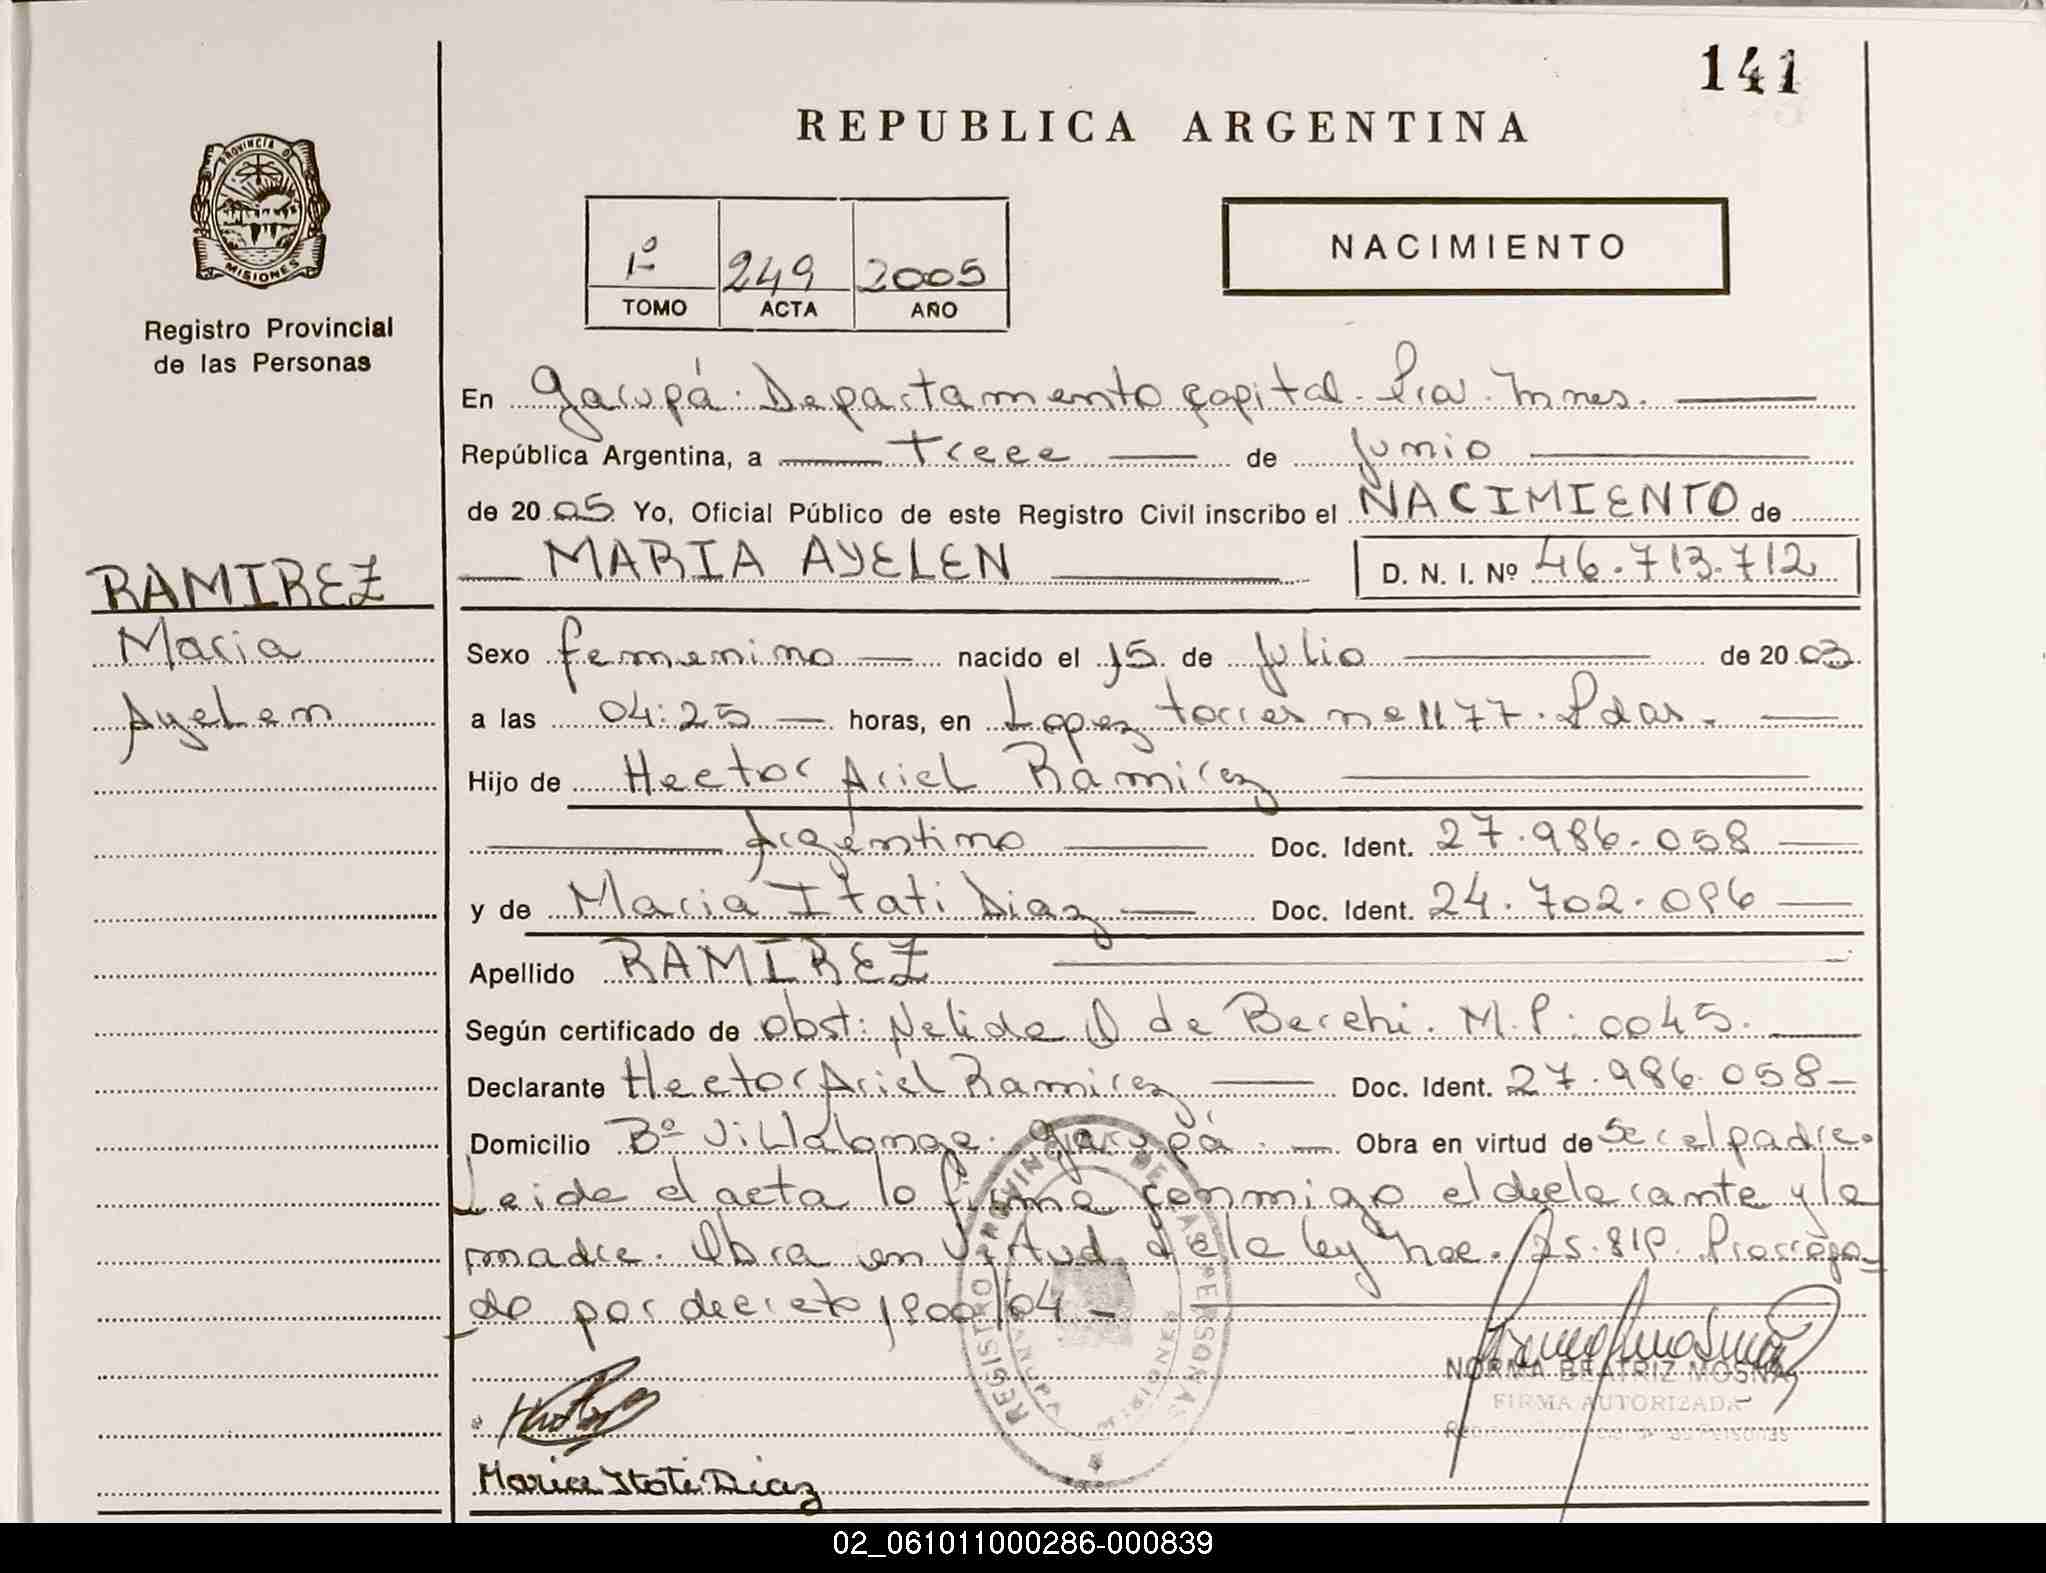 141
REPUBLICA ARGENTINA
PROVINCIA D
MISIONES
Registro Provincial
de las Personas
1º 249 2005
TOMO ACTA AÑO
NACIMIENTO
En Garupá. Departamento capital. Pcia. Mnes.
República Argentina, a trece de Junio
de 2005 Yo, Oficial Público de este Registro Civil inscribo el NACIMIENTO de
MARIA AYELEN D. N. I. Nº 46.713.712
RAMIREZ
Maria
Ayelen
Sexo femenino nacido el 15 de Julio de 2003
a las 04:25 horas, en Lopez torres nº 1177. Pdas.
Hijo de Hector Ariel Ramirez
Argentino Doc. Ident. 27.986.058
y de Maria Itati Diaz Doc. Ident. 24.702.096
Apellido RAMIREZ
Según certificado de obst: Nelida O de Berchi. M.P: 0045.
Declarante Hector Ariel Ramirez Doc. Ident. 27.986.058
Domicilio Bº Villalonga. Garupá. Obra en virtud de Ser el padre.
Leida el acta la firma conmigo el declarante y la
madre. Obra en virtud de la ley nac. 25.819. Prorroga-
do por decreto 1900/04 -
REGISTRO PROVINCIAL DE LAS PERSONAS
NORMA BEATRIZ MOSNA
FIRMA AUTORIZADA
Registro Provincial de las Personas
Maria Itati Diaz
02_061011000286-000839